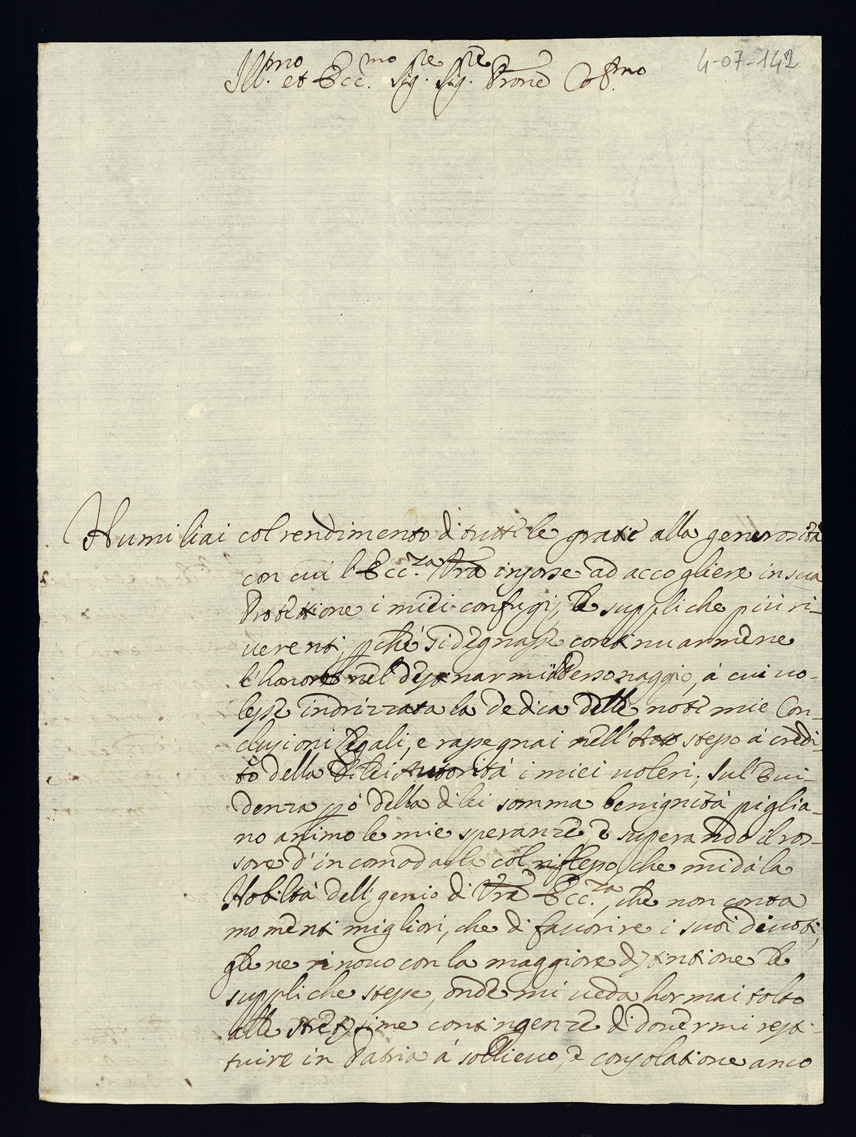 4-07-142
Ill.mo et Ecc.mo Sig.re Sig.re Prone Col.mo
Humiliai col rendimento di tutte le gratie alla generosità
con cui l'Ecc.za Vra in sua
Protettione i miei confugi, le suppliche più ri-
uerenti, pche si degnasse continuarmene
l'honore nel destinarmi Personaggio, á cui uo-
lesse indrizzata la Dedica delle note mie Con-
clusioni Legali, e rasegnai nell' stesso á credi-
to della di lei Autorità i miei uoleri; sul Eui-
denza pò della di lei somma benignità piglia-
no animo le mie speranze é superando il ros-
sore d'incomodarla col riflesso, che mi dá la
Nobiltà dell' genio di Vra Ecc.za, che non conta
momenti migliori, che di fauorire i suoi diuoti,
gle ne rinouo con la maggiore le
suppliche stesse, onde mi ueda hor mai tolto
alle contingenze di douermi resti-
tuire in Patria á sollieuo, é consolatione anco